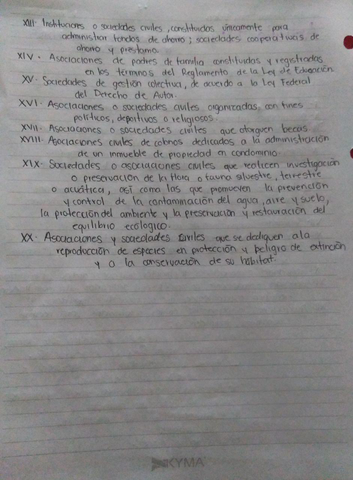 XIII- Instituciones o sociedades civiles, constituidas únicamente para
administrar fondos de ahorro; sociedades cooperativas de
ahorro y préstamo.
XIV- Asociaciones de padres de familia constituidas y registradas
en los términos del Reglamento de la Ley de Educación.
XV- Sociedades de gestión colectiva, de acuerdo a la Ley Federal
del Derecho de Autor.
XVI- Asociaciones o sociedades civiles organizadas, con fines
políticos, deportivos o religiosos.
XVII- Asociaciones o sociedades civiles que otorguen becas.
XVIII- Asociaciones civiles de colonos dedicados a la administración
de un inmueble de propiedad en condominio.
XIX- Sociedades o asociaciones civiles que realicen investigación
o preservación de la flora o fauna silvestre, terrestre
o acuática, así como las que promuevan la prevención
y control de la contaminación del agua, aire y suelo,
la protección del ambiente y la preservación y restauración del
equilibrio ecológico.
XX- Asociaciones y sociedades civiles que se dediquen a la
reproducción de especies en protección y peligro de extinción
y a la conservación de su hábitat.
KYMA